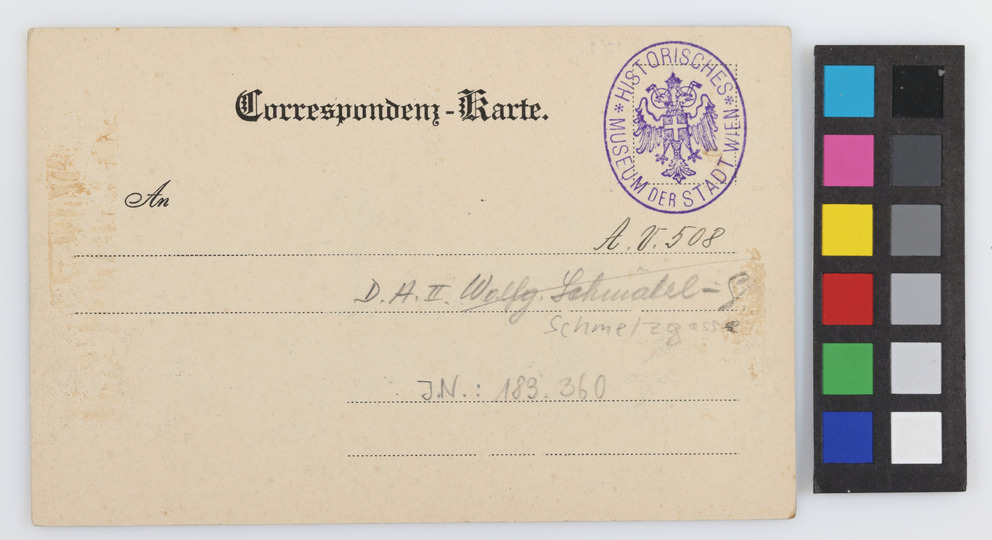 Correspondenz-Karte.
* HISTORISCHES * MUSEUM DER STADT WIEN
An
A. V. 508
D. A. II. Wolfg. Schmälzl - G
Schmelzgasse
JN.: 183.360